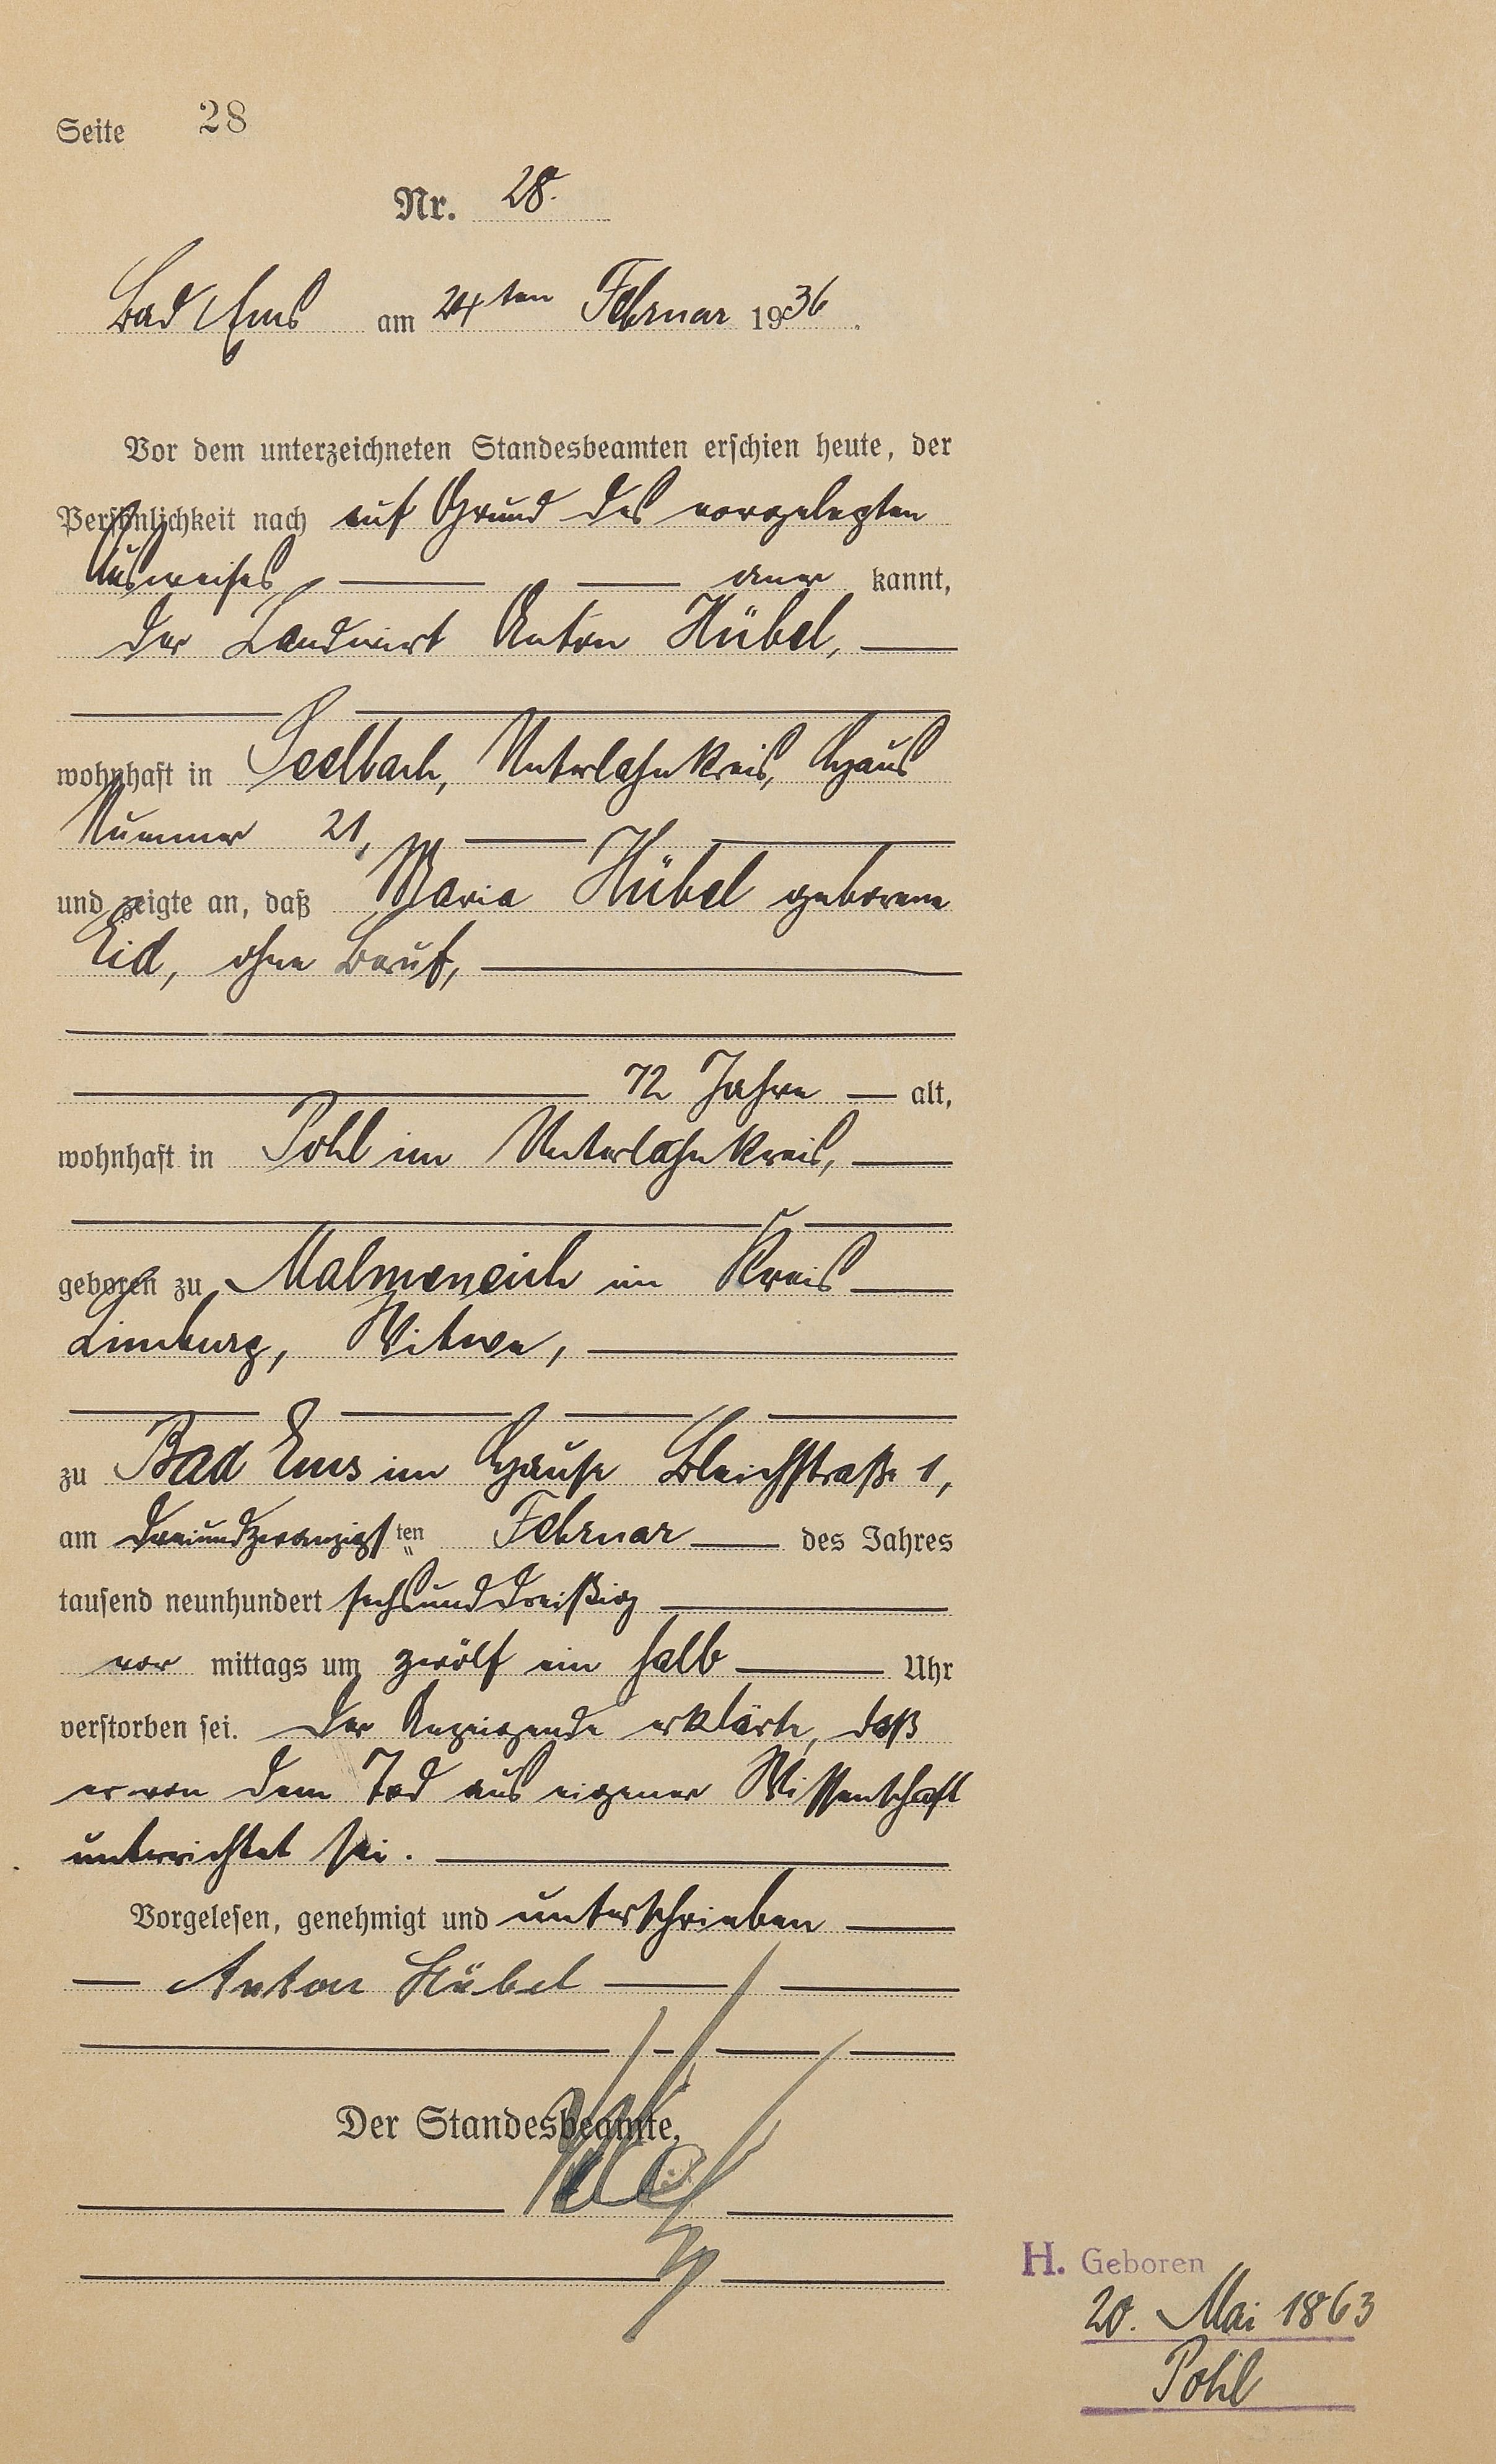 Seite 28
Nr. 28.
Bad Ems am 24ten Februar 1936.
Vor dem unterzeichneten Standesbeamten erschien heute, der
Persönlichkeit nach auf Grund des vorgelegten
Ausweises, aner kannt,
der Landwirt Anton Hübel,
wohnhaft in Seelbach, Unterlahnkreis, Haus
Nummer 21,
und zeigte an, daß Maria Hübel geborene
Eid, ohne Beruf,
72 Jahre alt,
wohnhaft in Pohl im Unterlahnkreis,
geboren zu Malmeneich im Kreis
Limburg, Witwe,
zu Bad Ems im Hause Bleichstraße 1,
am dreiundzwanzigsten Februar des Jahres
tausend neunhundert sechsunddreißig
vor mittags um zwölf ein halb Uhr
verstorben sei. Der Anzeigende erklärte, daß
er von dem Tod aus eigener Wissenschaft
unterrichtet sei.
Vorgelesen, genehmigt und unterschrieben
Anton Hübel
Der Standesbeamte.
H. Geboren
20. Mai 1863
Pohl